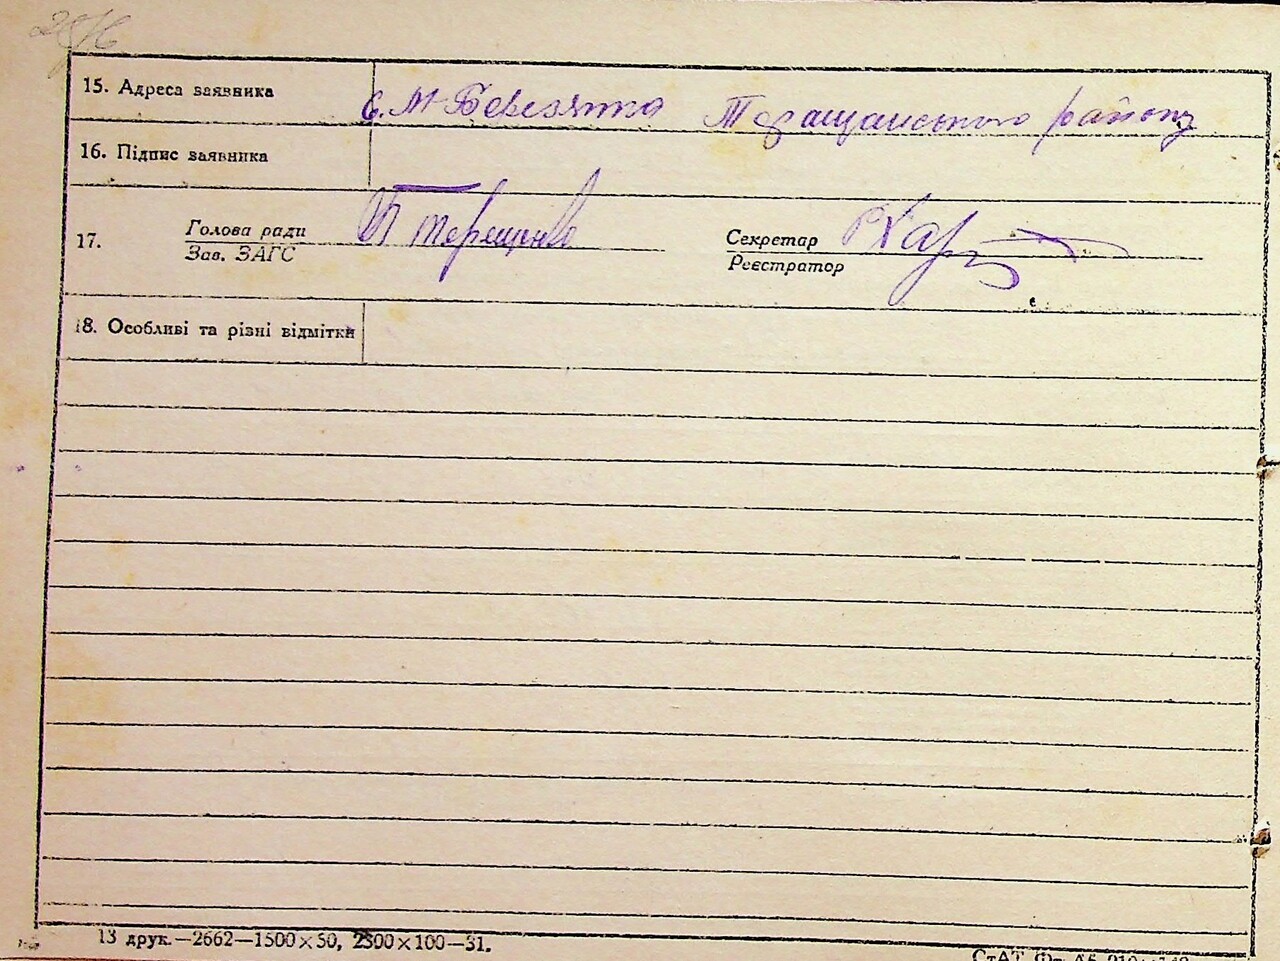 15. Адреса заявника с. М-Березянка Таращанського району
16. Підпис заявника
17. Голова ради Терещенко Секретар
Зав. ЗАГС Реєстратор
18. Особливі та різні відмітки
13 друк.—2662—1500×50, 2300×100—31.